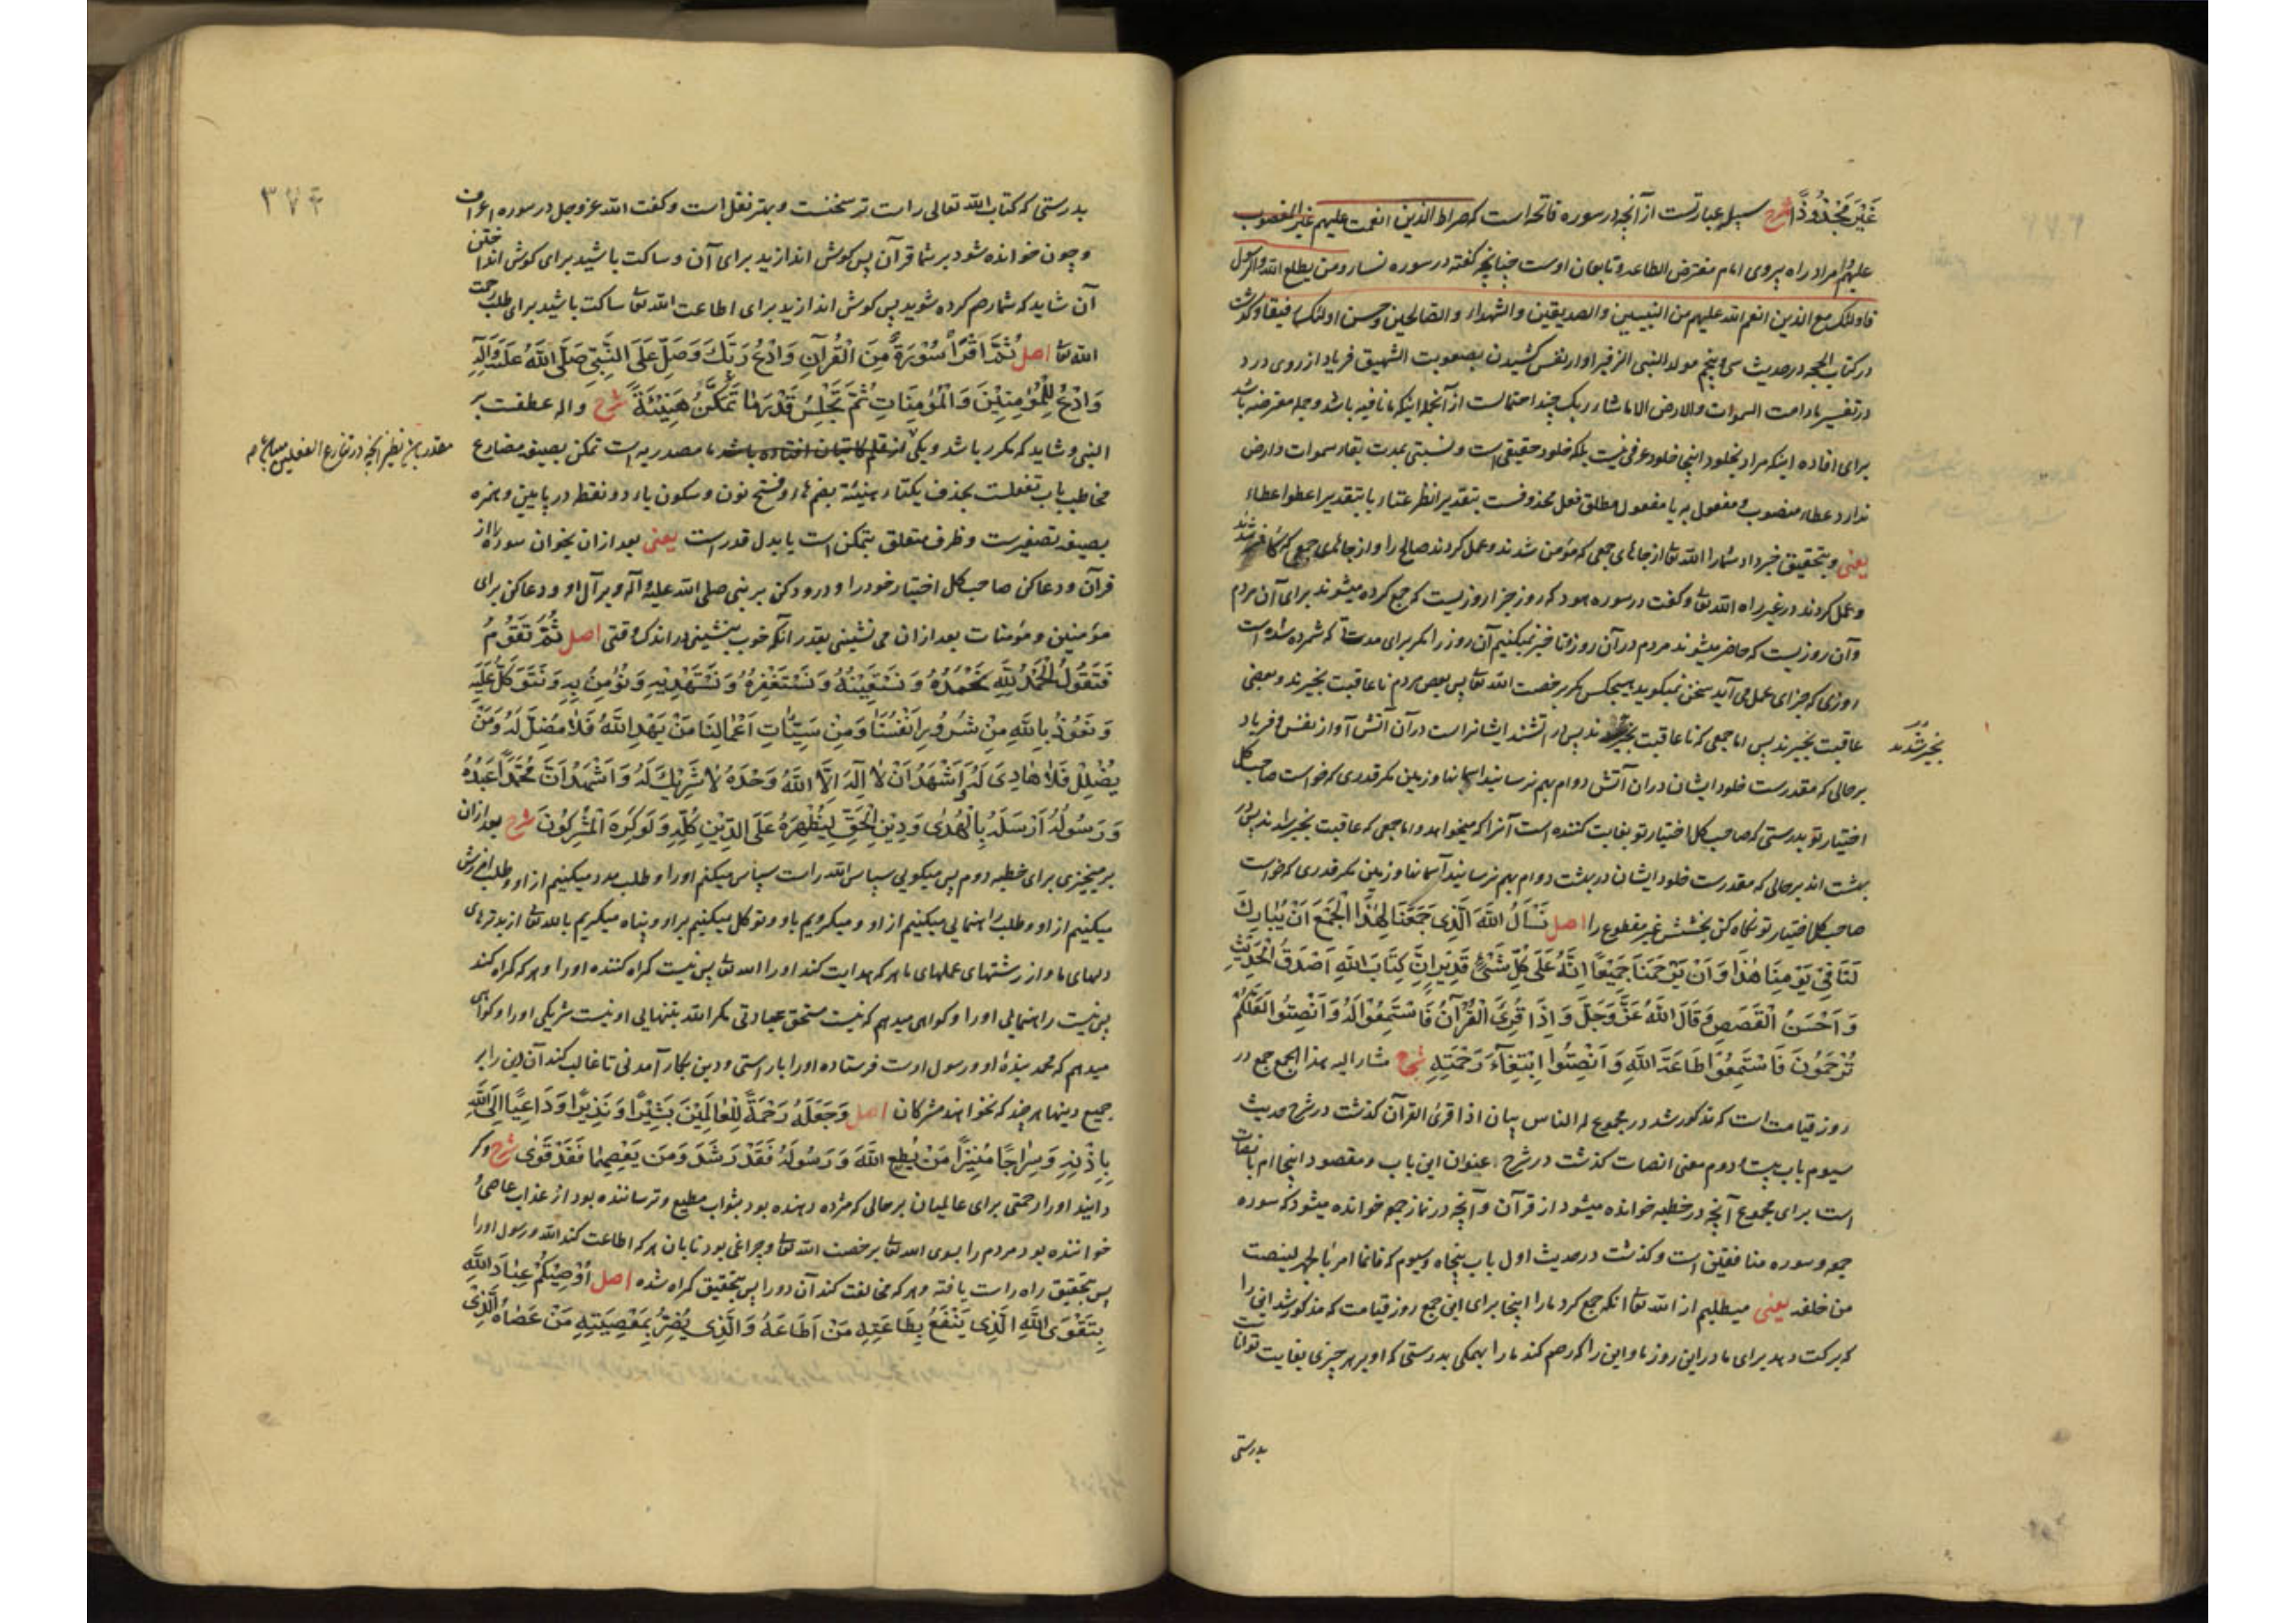 غَيْرَ مَجْذُوذٍ شرح سبيله عبارتست از آنچه در سوره فاتحه است که صراط الذين انعمت عليهم غير المغضوب
عليهم و مراد راه پيروى امام مفترض الطاعه و تابعان اوست چنانچه گفته در سوره نساء و من يطع الله والرسول
فاولئک مع الذين انعم الله عليهم من النبيين والصديقين والشهداء والصالحين وحسن اولئک رفيقا و گذشت
در کتاب الحجه در حديث سى و پنجم مولد النبى الزفير آواز نفس کشيدن بصعوبت الشهيق فرياد از روى درد
در تفسير مادامت السموات والارض الا ما شاء ربک چند احتمالست از آنجمله اينکه ما نافيه باشد و جمله معترضه باشد
براى افاده اينکه مراد بخلود اينجا خلود عرفى نيست بلکه خلود حقيقى است و نسبتى بمدت بقاء سموات وارض
ندارد عطاء منصوب و مفعول به يا مفعول مطلق فعل محذوفست بتقدير انظر عطاء يا بتقدير اعطوا عطاء
يعنى و بتحقيق خبر داد شما را الله تعا از جاهاى جمعى که مؤمن شدند و عمل کردند صالح را و از جاهاى جمعى که کافر شدند
و عمل کردند در غير راه الله تعا و گفت در سوره هود که روز جزا روزيست که جمع کرده ميشوند براى آن مردم
و آن روزيست که حاضر ميشوند مردم در آن روز و تاخير نميکنيم آن روز را مگر براى مدتى که شمرده شده است
روزى که جزاى عمل مى آيد سخن نميکويد هيچکس مگر برخصت الله تعا پس بعض مردم ناعاقبت بخيرند و بعضى
عاقبت بخيرند پس اما جمعى که ناعاقبت بخير شدند پس در آتشند ايشانراست در آن آتش آواز نفس و فرياد
بخير شدند
بر حالى که مقدرست خلود ايشان در آن آتش دوام بهم نرسانيد آسمانها و زمين مگر قدرى که خواست صاحب کل
اختيار تو بدرستى که صاحب کل اختيار تو بغايت کننده است آنرا که ميخواهد و اما جمعى که عاقبت بخير شدند پس در
بهشت اند بر حالى که مقدرست خلود ايشان در بهشت دوام بهم نرسانيد آسمانها و زمين مگر قدرى که خواست
صاحب کل اختيار تو نگاه کن بخشش غير مقطوع را اصل نَسْأَلُ اللَّهَ الَّذِي جَمَعَنَا لِهٰذَا الْجَمْعِ أَنْ يُبَارِكَ
لَنَا فِي يَوْمِنَا هٰذَا وَأَنْ يَرْحَمَنَا جَمِيعًا إِنَّهُ عَلَى كُلِّ شَيْءٍ قَدِيرٌ إِنَّ كِتَابَ اللَّهِ أَصْدَقُ الْحَدِيثِ
وَأَحْسَنُ الْقَصَصِ وَقَالَ اللَّهُ عَزَّ وَجَلَّ وَإِذَا قُرِئَ الْقُرْآنُ فَاسْتَمِعُوا لَهُ وَأَنْصِتُوا لَعَلَّكُمْ
تُرْحَمُونَ فَاسْتَمِعُوا طَاعَةَ اللَّهِ وَأَنْصِتُوا ابْتِغَاءَ رَحْمَتِهِ شرح مشار اليه بهذا الجمع جمع در
روز قيامت است که مذکور شد در مجموع له الناس بيان اذا قرئ القرآن گذشت در شرح حديث
سيوم باب بيست و دوم معنى انصات گذشت در شرح عنوان اين باب و مقصود اينجا امر بانصات
است براى مجموع آنچه در خطبه خوانده ميشود از قرآن و آنچه در نماز جمعه خوانده ميشود که سوره
جمعه و سوره منافقين است و گذشت در حديث اول باب پنجاه و سيوم که فانما امرنا بالجهر لينصت
من خلفه يعنى ميطلبيم از الله تعا آنکه جمع کرد ما را اينجا براى اين جمع روز قيامت که مذکور شد اين را
که برکت دهد براى ما در اين روز ما و اين را که رحم کند ما را بهمگى بدرستى که او بر هر چيزى بغايت تواناست
بدرستى
۳۷۴
بدرستى که کتاب الله تعالى راست تر سخنست و بهتر نقل است و گفت الله عز و جل در سوره اعراف
و چون خوانده شود بر شما قرآن پس گوش اندازيد براى آن و ساکت باشيد براى گوش انداختن
آن شايد که شما رحم کرده شويد پس گوش اندازيد براى اطاعت الله تعا ساکت باشيد براى طلب رحمت
الله تعا اصل ثُمَّ اقْرَأْ سُورَةً مِنَ الْقُرْآنِ وَادْعُ رَبَّكَ وَصَلِّ عَلَى النَّبِيِّ صَلَّى اللَّهُ عَلَيْهِ وَآلِهِ
وَادْعُ لِلْمُؤْمِنِينَ وَالْمُؤْمِنَاتِ ثُمَّ تَجْلِسُ قَدْرَ مَا تَمَكَّنُ هُنَيْئَةً شرح واله عطفست بر
النبى و شايد که مکرر باشد و يکى از قلم کاتبان افتاده باشد ما مصدريه است تمکن بصيغه مضارع
مخاطب باب تفعلست بحذف يکتاء هنيئة بضم هاء و فتح نون و سکون ياء دو نقطه در پايين و همزه
بصيغه تصغيرست و ظرف متعلق بتمکن است يا بدل قدر است يعنى بعد از آن بخوان سوره را از
قرآن و دعا کن صاحب کل اختيار خود را و درود کن بر نبى صلى الله عليه و آله و بر آل او و دعا کن براى
مؤمنين و مؤمنات بعد از آن مى نشينى بقدر آنکه خوب بنشينى در اندک وقتى اصل ثُمَّ تَقُومُ
فَتَقُولُ الْحَمْدُ لِلَّهِ نَحْمَدُهُ وَنَسْتَعِينُهُ وَنَسْتَغْفِرُهُ وَنَسْتَهْدِيهِ وَنُؤْمِنُ بِهِ وَنَتَوَكَّلُ عَلَيْهِ
وَنَعُوذُ بِاللَّهِ مِنْ شُرُورِ أَنْفُسِنَا وَمِنْ سَيِّئَاتِ أَعْمَالِنَا مَنْ يَهْدِ اللَّهُ فَلَا مُضِلَّ لَهُ وَمَنْ
يُضْلِلْ فَلَا هَادِيَ لَهُ وَأَشْهَدُ أَنْ لَا إِلَهَ إِلَّا اللَّهُ وَحْدَهُ لَا شَرِيكَ لَهُ وَأَشْهَدُ أَنَّ مُحَمَّدًا عَبْدُهُ
وَرَسُولُهُ أَرْسَلَهُ بِالْهُدَى وَدِينِ الْحَقِّ لِيُظْهِرَهُ عَلَى الدِّينِ كُلِّهِ وَلَوْ كَرِهَ الْمُشْرِكُونَ شرح بعد از آن
برميخيزى براى خطبه دوم پس ميگويى سپاس الله راست سپاس ميکنم او را و طلب مدد ميکنيم از او و طلب آمرزش
ميکنيم از او و طلب راهنمايى ميکنيم از او و ميگرويم باو و توکل ميکنيم بر او و پناه ميگيريم بالله تعا از بدترهاى
دلهاى ما و از زشتهاى عملهاى ما هر که هدايت کند او را الله تعا پس نيست گمراه کننده او را و هر که گمراه کند
پس نيست راهنمائى او را و گواهى ميدهم که نيست مستحق عبادتى مگر الله بتنهايى او نيست شريکى او را و گواهى
ميدهم که محمد بنده او و رسول اوست فرستاده او را با راستى و دين بکار آمدنى تا غالب کند آن دين را بر
جميع دينها هر چند که نخواهند مشرکان اصل وَجَعَلَهُ رَحْمَةً لِلْعَالَمِينَ بَشِيرًا وَنَذِيرًا وَدَاعِيًا إِلَى اللَّهِ
بِإِذْنِهِ وَسِرَاجًا مُنِيرًا مَنْ يُطِعِ اللَّهَ وَرَسُولَهُ فَقَدْ رَشَدَ وَمَنْ يَعْصِهِمَا فَقَدْ غَوَى شرح و گر
دانيد او را رحمتى براى عالميان بر حالى که مژده دهنده بود بثواب مطيع و ترساننده بود از عذاب عاصى و
خواننده بود مردم را بسوى الله تعا برخصت الله تعا و چراغى بود تابان هر که اطاعت کند الله و رسول او را
پس بتحقيق راه راست يافته و هر که مخالفت کند آن دو را پس بتحقيق گمراه شده اصل أُوصِيكُمْ عِبَادَ اللَّهِ
بِتَقْوَى اللَّهِ الَّذِي يَنْفَعُ بِطَاعَتِهِ مَنْ أَطَاعَهُ وَالَّذِي يَضُرُّ بِمَعْصِيَتِهِ مَنْ عَصَاهُ الَّذِي